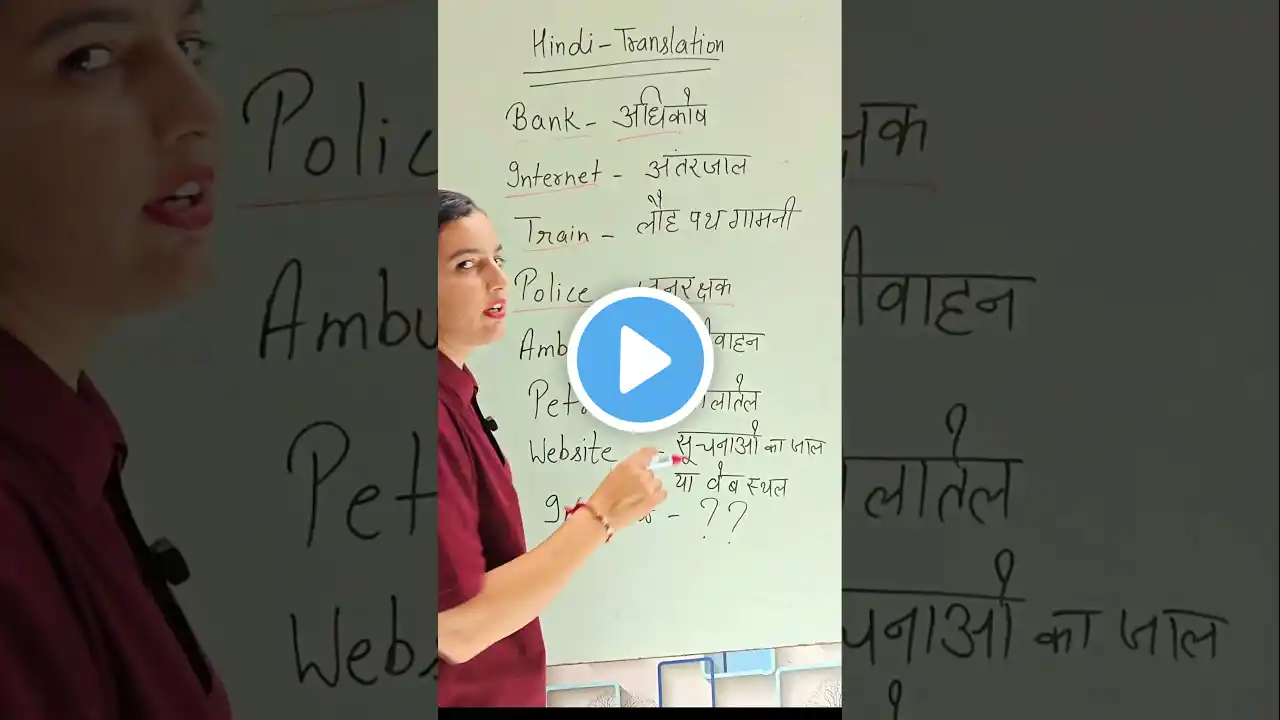 Hindi-Translation
Bank - अधिकोष
Internet - अंतरजाल
Train - लौह पथ गामनी
Police रक्षक
वाहन
Website - सूचनाओं का जाल
या वेब स्थल
- ??